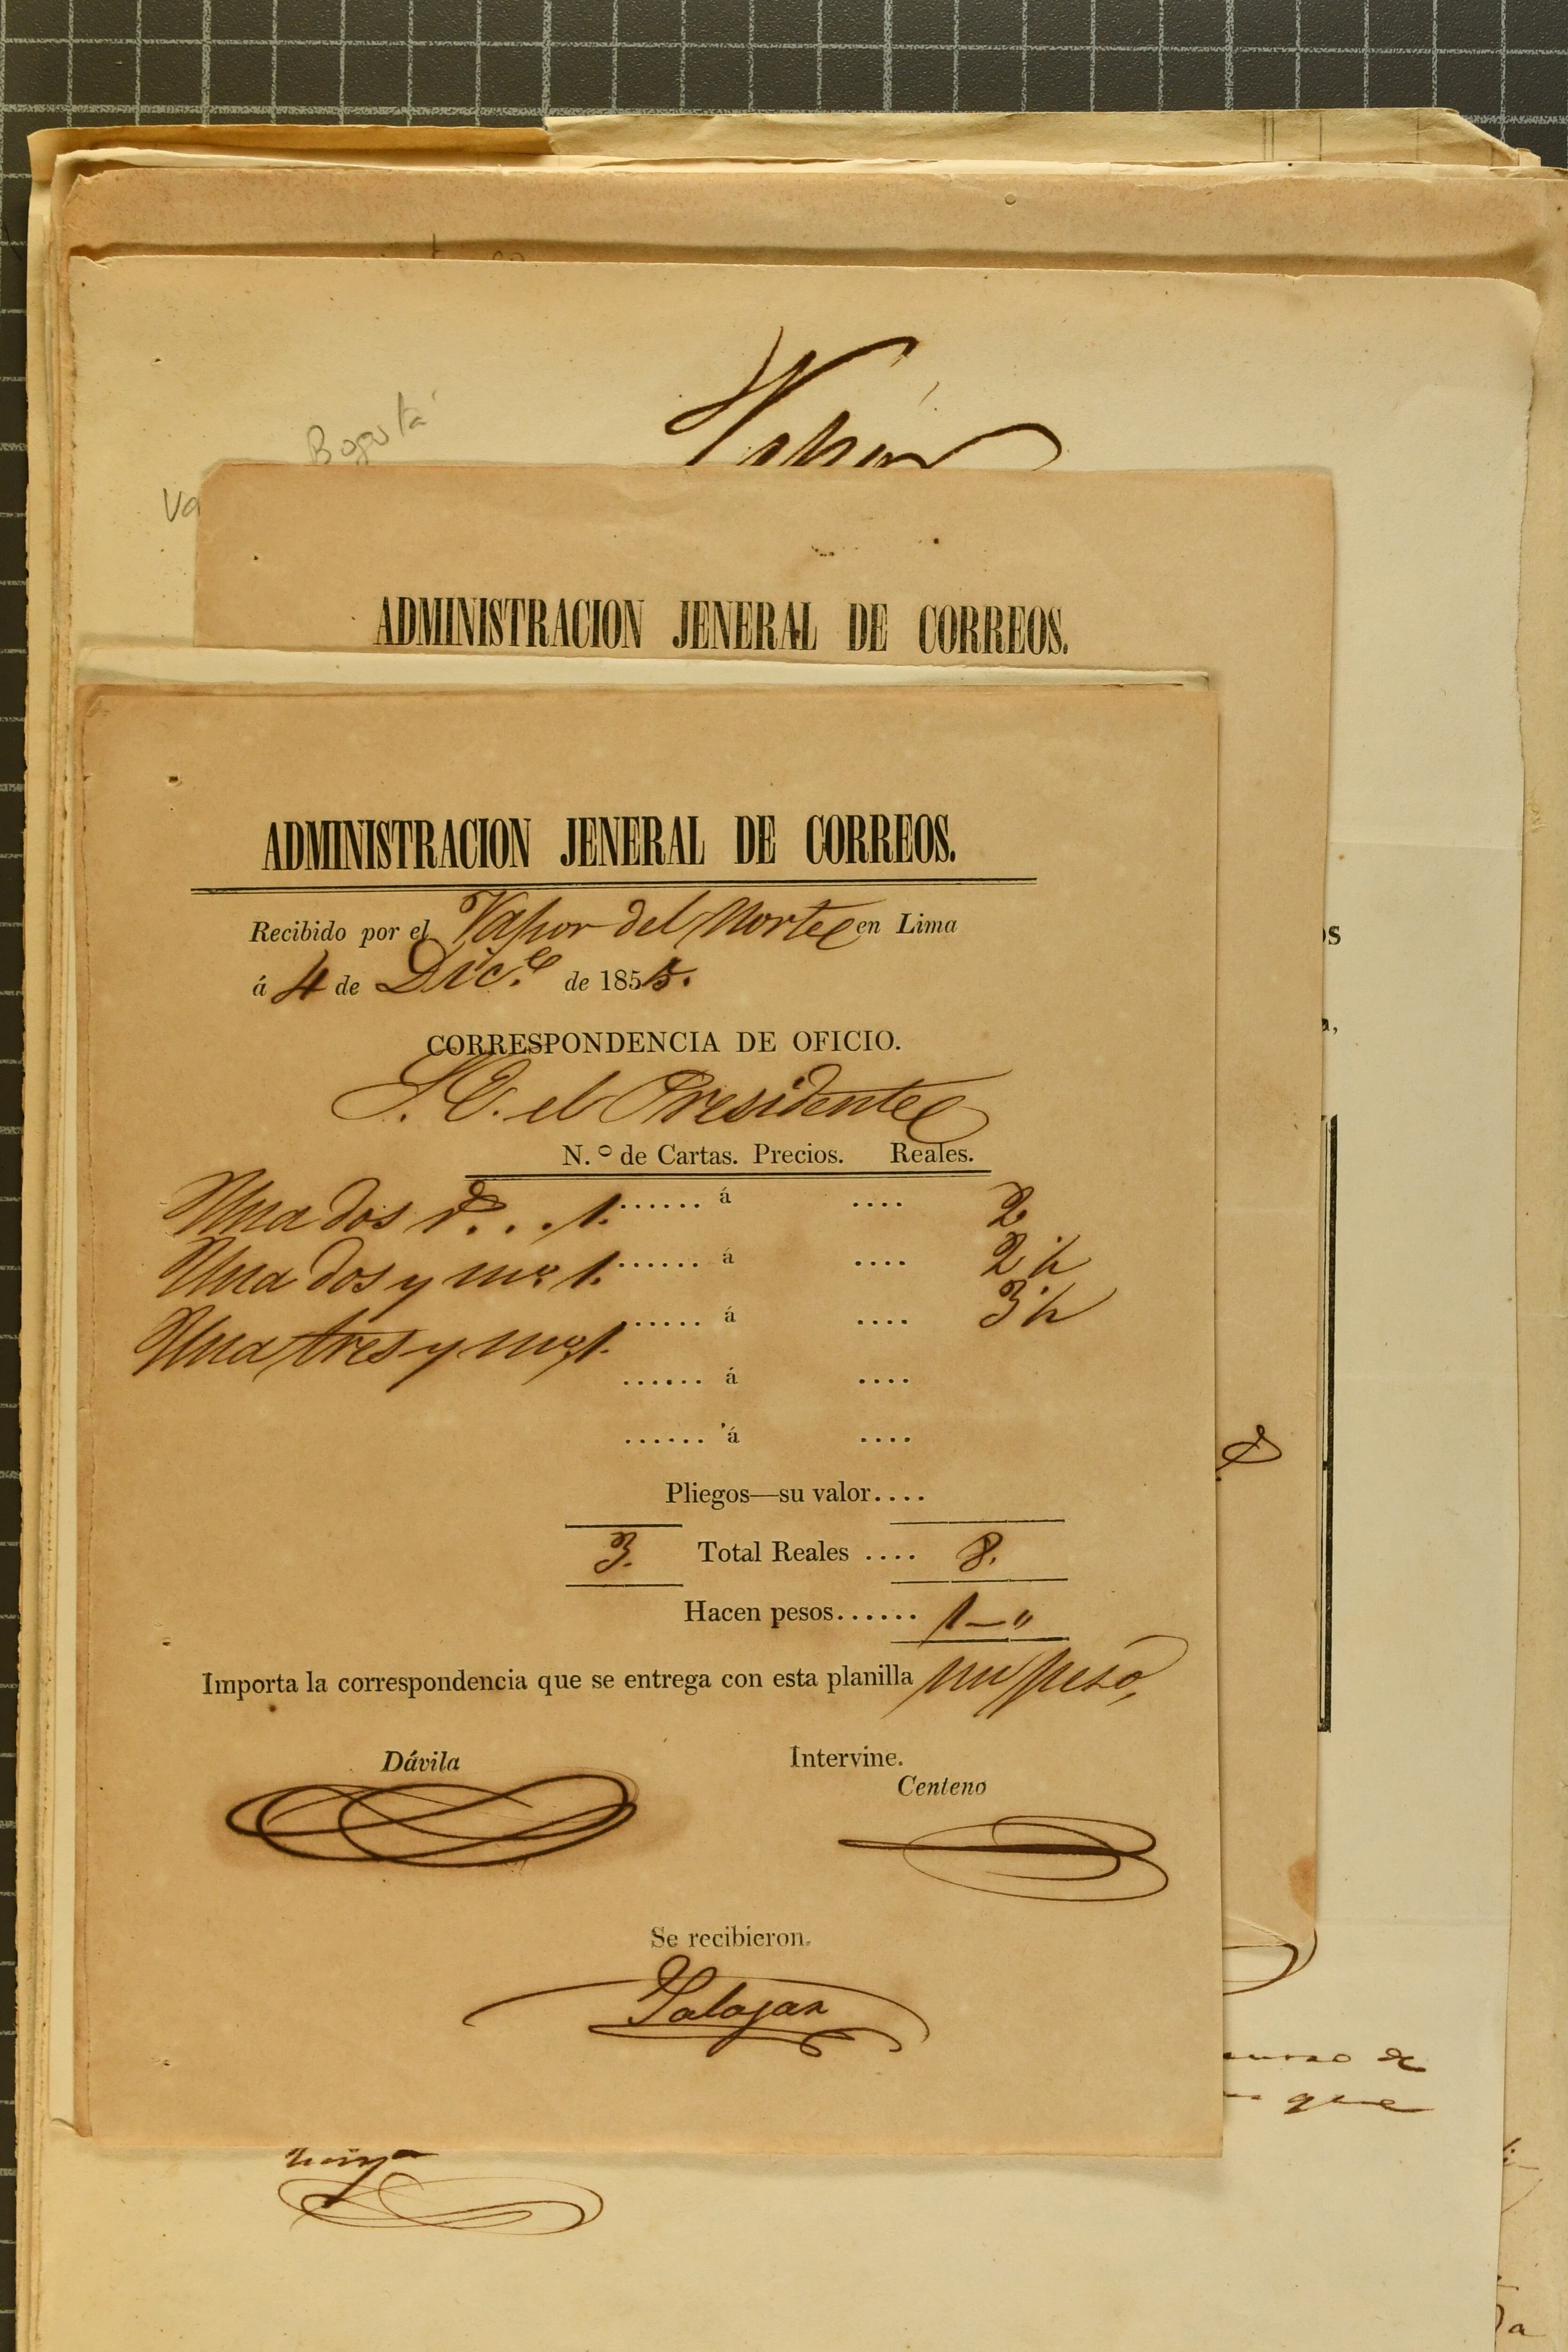 Bogotá
Va
Vapor
ADMINISTRACION JENERAL DE CORREOS.
ADMINISTRACION JENERAL DE CORREOS.
Recibido por el Vapor del Norte en Lima
á 4 de Dic.e de 1855.
CORRESPONDENCIA DE OFICIO.
S. E. el Presidente
N.º de Cartas. Precios. Reales.
Una dos r. . . 1. ...... á .... 2
Una dos y mo. 1. ...... á .... 2 ½
Una tres y mo. 1. ...... á .... 3 ½
...... á ....
...... á ....
Pliegos—su valor....
3. Total Reales .... 8.
Hacen pesos...... 1—"
Importa la correspondencia que se entrega con esta planilla un peso,
Dávila
Intervine.
Centeno
Se recibieron.
Salazar
os
a,
de
que